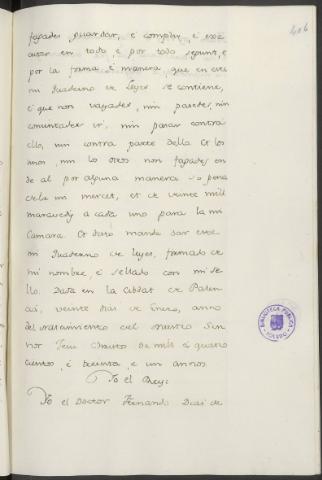 406
fagades, guardar, é complir, é exe
cutar en todo, é por todo segunt, é
por la forma é manera, que en este
mi Quaderno de Leyes se contiene,
é que non vayades, nin pasedes, nin
consintades ir, nin pasar contra
ello, nin contra parte dello. Et los
unos, nin los otros non fagades en
de al por alguna manera so pena
de la mi merced, et de veinte mill
maravedis a cada uno para la mi
Camara. Et desto mandé dar este
mi Quaderno de Leyes, firmado de
mi nombre, é sellado con mi se
llo. Dada en la Cibdat de Palen
cia, veinte dias de Enero, año
del nascimiento del Nuestro Sen
nor Jesu Christo de mil é quatro
cientos, é treinta, e un annos
Yo el Rey:
Yo el Doctor Fernando Diaz de
BIBLIOTECA PUBLICA
TOLEDO